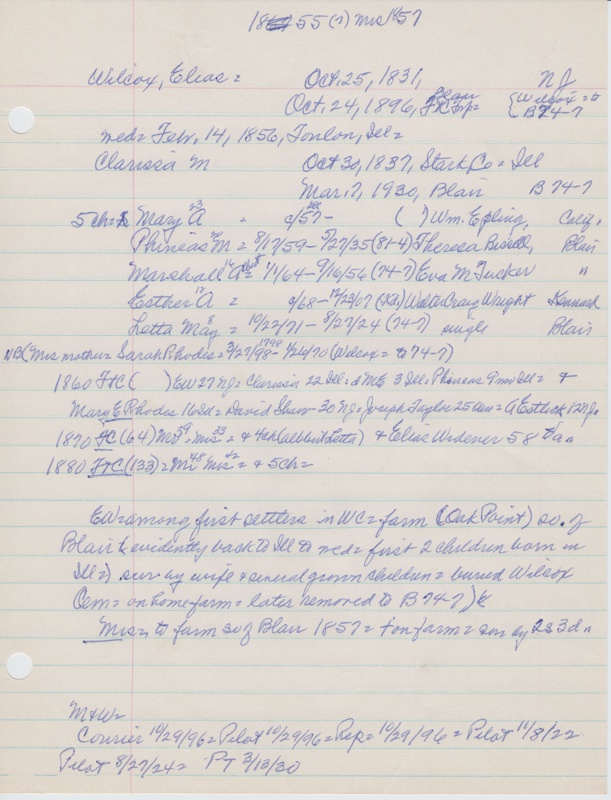 18 55 (?) Mrs 1857
Wilcox, Elias = Oct. 25, 1831, NJ
Oct. 24, 1896, Blair FC Twp = {Wilcox = to B 74-7
med = Feb. 14, 1856, Toulon, Ill =
Clarissa M Oct 30, 1837, Stark Co = Ill
Mar. 7, 1930, Blair B 74-7
5 ch = Mary A 23 = c/57 - ( ) Wm. Epling, Calif.
Phineas M = 8/17/59 - 5/27/35 (81-4) Theresa Bissell, Blair
Marshall A = 1/1/64 - 9/16/56 (74-7) Eva M Tucker "
Esther A 17 = c/68 - 12/23/07 (Kd) Walter Craig Wright Kennard
Letta May 8 = 10/22/71 - 8/27/24 (74-7) single Blair
NB (Mrs mother = Sarah Rhodes = 3/27/1798 - 1/26/70 (Wilcox = to 74-7)
1860 FtC ( ) EW 27 NJ = Clarissa 22 Ill = d ME 3 Ill = Phineas 9 mo Ill = &
Mary E Rhodes 16 = David Shaw 30 NJ = Joseph Taylor 25 = A 12 NJ =
1870 FC (64) Mr 39 = Mrs 33 = & 4 ch (all but Letta) & Elias Widener 58
1880 FtC (133) = Mr 48 Mrs 42 = & 5 ch =
EW = among first settlers in WC = farm (Oak Point) so. of
Blair & evidently back to Ill to med = first 2 children born in
Ill =) sur. by wife & several grown children = buried Wilcox
Cem = on home farm = later removed to B 74-7)
Mrs = to farm so of Blair 1857 = on farm = sur by 2s 3d =
M & W =
Courier 10/29/96 = Pilot 10/29/96 = Rep = 10/29/96 = Pilot 11/8/22
Pilot 8/27/24 = PT 3/13/30